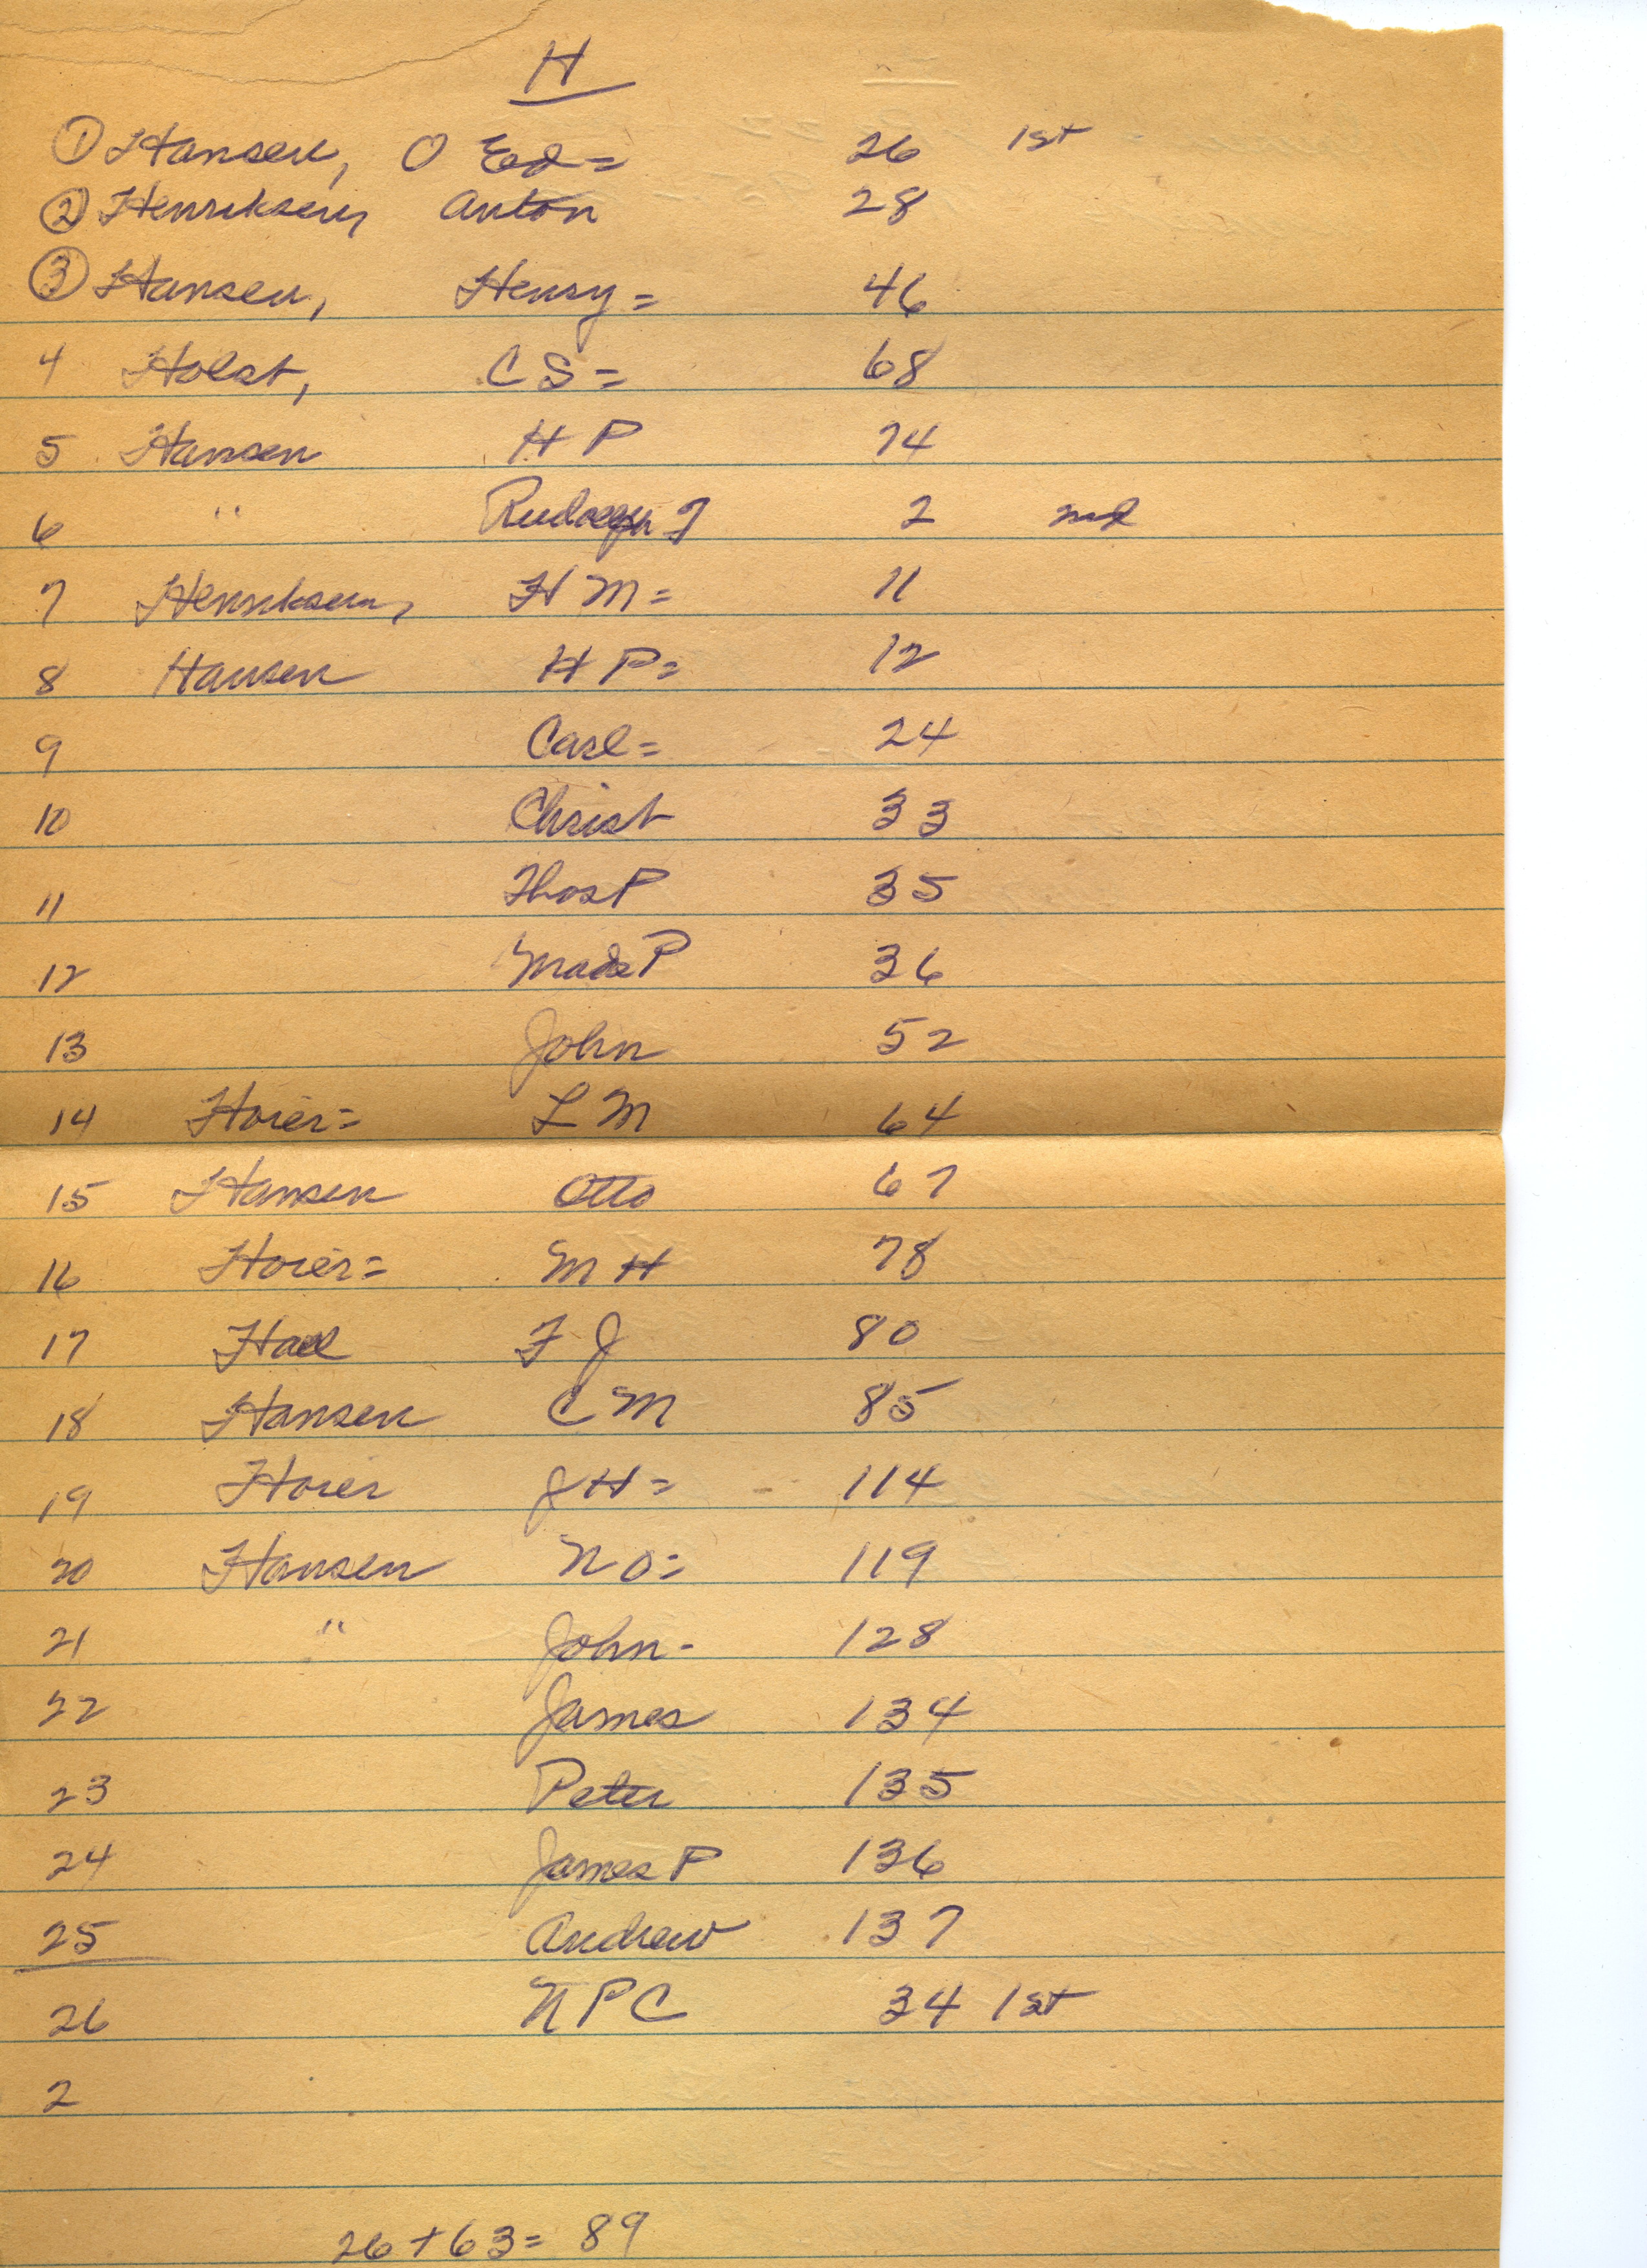 H
① Hansen, O Ed = 26 1st
② Henriksen, Anton 28
③ Hansen, Henry = 46
4 Holst, CS = 68
5 Hansen H P 74
6 " 2 2nd
7 Henriksen, H M = 11
8 Hansen H P = 12
9 Carl = 24
10 Christ 33
11 Thos P 35
12 Mads P 36
13 John 52
14 Hoier = L M 64
15 Hansen Otto 67
16 Hoier = M H 78
17 Hall F J 80
18 Hansen C M 85
19 Hoier J H = 114
20 Hansen N O = 119
21 " John - 128
22 James 134
23 Peter 135
24 James P 136
25 Andrew 137
26 N P C 34 1st
2
26 + 63 = 89